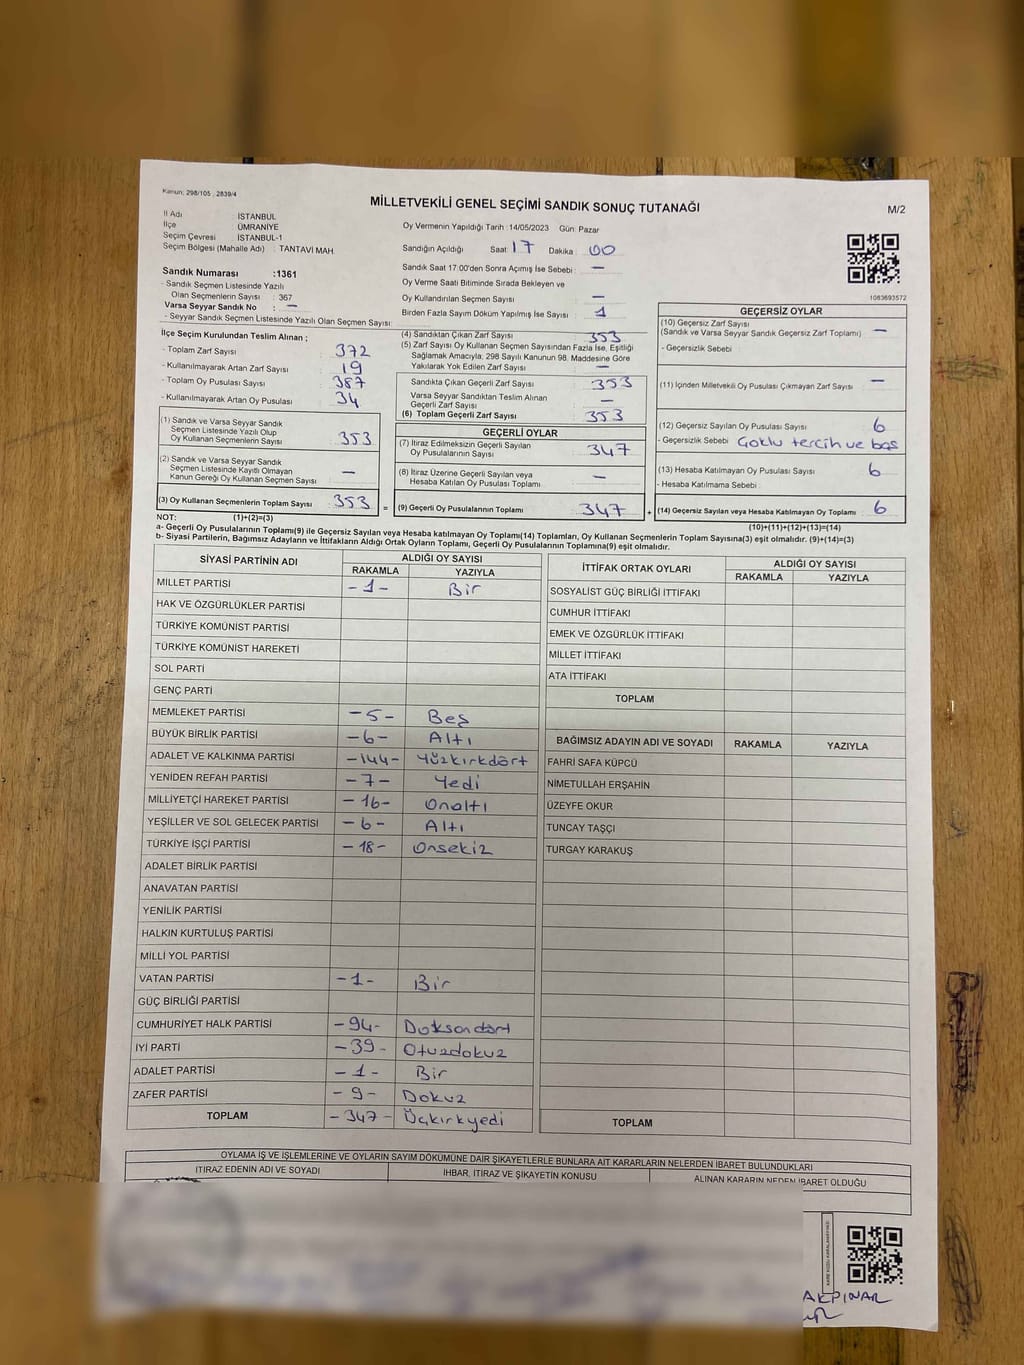 Kanun; 298/105 , 2839/4
MİLLETVEKİLİ GENEL SEÇİMİ SANDIK SONUÇ TUTANAĞI
M/2
İl Adı : İSTANBUL
İlçe : ÜMRANİYE
Seçim Çevresi : İSTANBUL-1
Seçim Bölgesi (Mahalle Adı) : TANTAVİ MAH.
Oy Vermenin Yapıldığı Tarih :14/05/2023 Gün: Pazar
Sandığın Açıldığı Saat: 17 Dakika : 00
Sandık Saat 17:00'den Sonra Açımış İse Sebebi : —
Oy Verme Saati Bitiminde Sırada Bekleyen ve
Oy Kullandırılan Seçmen Sayısı : —
Birden Fazla Sayım Döküm Yapılmış İse Sayısı : 1
Sandık Numarası :1361
- Sandık Seçmen Listesinde Yazılı
Olan Seçmenlerin Sayısı : 367
Varsa Seyyar Sandık No : —
- Seyyar Sandık Seçmen Listesinde Yazılı Olan Seçmen Sayısı:
1063693572
İlçe Seçim Kurulundan Teslim Alınan ;
- Toplam Zarf Sayısı : 372
- Kullanılmayarak Artan Zarf Sayısı : 19
- Toplam Oy Pusulası Sayısı : 387
- Kullanılmayarak Artan Oy Pusulası : 34
(1) Sandık ve Varsa Seyyar Sandık
Seçmen Listesinde Yazılı Olup
Oy Kullanan Seçmenlerin Sayısı : 353
(2) Sandık ve Varsa Seyyar Sandık
Seçmen Listesinde Kayıtlı Olmayan
Kanun Gereği Oy Kullanan Seçmen Sayısı : —
(3) Oy Kullanan Seçmenlerin Toplam Sayısı : 353 =
(4) Sandıktan Çıkan Zarf Sayısı : 353
(5) Zarf Sayısı Oy Kullanan Seçmen Sayısından Fazla İse, Eşitliği
Sağlamak Amacıyla, 298 Sayılı Kanunun 98. Maddesine Göre
Yakılarak Yok Edilen Zarf Sayısı : —
Sandıkta Çıkan Geçerli Zarf Sayısı : 353
Varsa Seyyar Sandıktan Teslim Alınan
Geçerli Zarf Sayısı : —
(6) Toplam Geçerli Zarf Sayısı : 353
GEÇERLİ OYLAR
(7) İtiraz Edilmeksizin Geçerli Sayılan
Oy Pusulalarının Sayısı : 347
(8) İtiraz Üzerine Geçerli Sayılan veya
Hesaba Katılan Oy Pusulası Toplamı : —
(9) Geçerli Oy Pusulalarının Toplamı : 347 +
GEÇERSİZ OYLAR
(10) Geçersiz Zarf Sayısı
(Sandık ve Varsa Seyyar Sandık Geçersiz Zarf Toplamı) : —
- Geçersizlik Sebebi :
(11) İçinden Milletvekili Oy Pusulası Çıkmayan Zarf Sayısı : —
(12) Geçersiz Sayılan Oy Pusulası Sayısı : 6
- Geçersizlik Sebebi : Çoklu tercih ve boş
(13) Hesaba Katılmayan Oy Pusulası Sayısı : 6
- Hesaba Katılmama Sebebi :
(14) Geçersiz Sayılan veya Hesaba Katılmayan Oy Toplamı : 6
NOT: (1)+(2)=(3)
(10)+(11)+(12)+(13)=(14)
a- Geçerli Oy Pusulalarının Toplamı(9) ile Geçersiz Sayılan veya Hesaba katılmayan Oy Toplamı(14) Toplamları, Oy Kullanan Seçmenlerin Toplam Sayısına(3) eşit olmalıdır. (9)+(14)=(3)
b- Siyasi Partilerin, Bağımsız Adayların ve İttifakların Aldığı Ortak Oyların Toplamı, Geçerli Oy Pusulalarının Toplamına(9) eşit olmalıdır.
SİYASİ PARTİNİN ADI ALDIĞI OY SAYISI
RAKAMLA YAZIYLA
MİLLET PARTİSİ -1- Bir
HAK VE ÖZGÜRLÜKLER PARTİSİ
TÜRKİYE KOMÜNİST PARTİSİ
TÜRKİYE KOMÜNİST HAREKETİ
SOL PARTİ
GENÇ PARTİ
MEMLEKET PARTİSİ -5- Beş
BÜYÜK BİRLİK PARTİSİ -6- Altı
ADALET VE KALKINMA PARTİSİ -144- Yüzkırkdört
YENİDEN REFAH PARTİSİ -7- Yedi
MİLLİYETÇİ HAREKET PARTİSİ -16- Onaltı
YEŞİLLER VE SOL GELECEK PARTİSİ -6- Altı
TÜRKİYE İŞÇİ PARTİSİ -18- Onsekiz
ADALET BİRLİK PARTİSİ
ANAVATAN PARTİSİ
YENİLİK PARTİSİ
HALKIN KURTULUŞ PARTİSİ
MİLLİ YOL PARTİSİ
VATAN PARTİSİ -1- Bir
GÜÇ BİRLİĞİ PARTİSİ
CUMHURİYET HALK PARTİSİ -94- Doksandört
İYİ PARTİ -39- Otuzdokuz
ADALET PARTİSİ -1- Bir
ZAFER PARTİSİ -9- Dokuz
TOPLAM -347- Üçkırkyedi
İTTİFAK ORTAK OYLARI ALDIĞI OY SAYISI
RAKAMLA YAZIYLA
SOSYALİST GÜÇ BİRLİĞİ İTTİFAKI
CUMHUR İTTİFAKI
EMEK VE ÖZGÜRLÜK İTTİFAKI
MİLLET İTTİFAKI
ATA İTTİFAKI
TOPLAM
BAĞIMSIZ ADAYIN ADI VE SOYADI RAKAMLA YAZIYLA
FAHRİ SAFA KÜPCÜ
NİMETULLAH ERŞAHİN
ÜZEYFE OKUR
TUNCAY TAŞÇI
TURGAY KARAKUŞ
TOPLAM
OYLAMA İŞ VE İŞLEMLERİNE VE OYLARIN SAYIM DÖKÜMÜNE DAİR ŞİKAYETLERLE BUNLARA AİT KARARLARIN NELERDEN İBARET BULUNDUKLARI
İTİRAZ EDENİN ADI VE SOYADI İHBAR, İTİRAZ VE ŞİKAYETİN KONUSU ALINAN KARARIN NEDEN İBARET OLDUĞU
AKPINAR